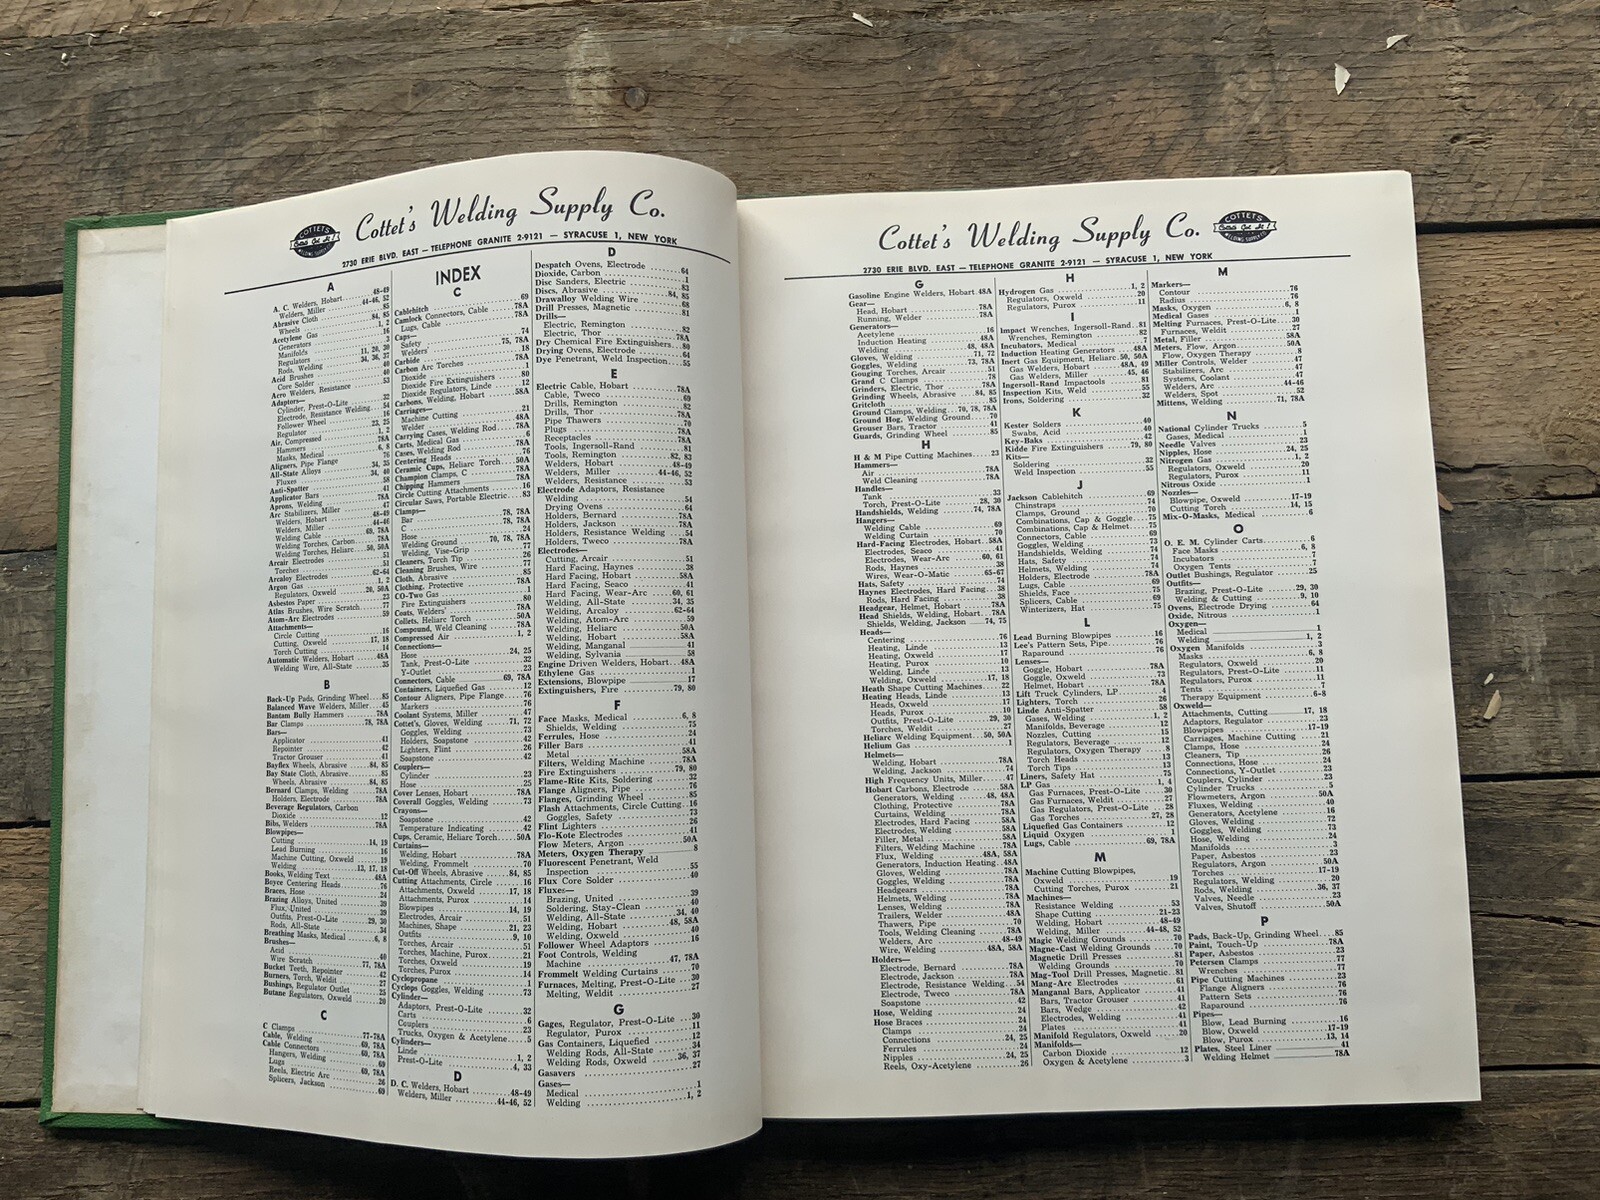 COTTET'S
Cottet's Welding Supply Co.
2730 ERIE BLVD. EAST — TELEPHONE GRANITE 2-9121 — SYRACUSE 1, NEW YORK
INDEX
A
A. C. Welders, Hobart 48-49
Welders, Miller 44-46, 52
Abrasive Cloth 85
Wheels 84, 85
Acetylene Gas 1, 2
Generators 16
Manifolds 3
Regulators 11, 20, 30
Rods, Welding 34, 36, 37
Acid Brushes 40
Core Solder 40
Aero Welders, Resistance 53
Adaptors—
Cylinder, Prest-O-Lite 32
Electrode, Resistance Welding 54
Follower Wheel 16
Regulator 23, 25
Air, Compressed 1, 2
Hammers 78A
Masks, Medical 6, 8
Aligners, Pipe Flange 76
All-State Alloys 34, 35
Fluxes 34, 40
Anti-Spatter 58
Applicator Bars 41
Aprons, Welding 78A
Arc Stabilizers, Miller 47
Welders, Hobart 48-49
Welders, Miller 44-46
Welding Cable 69, 78A
Welding Torches, Carbon 78A
Welding Torches, Heliarc 50, 50A
Arcair Electrodes 51
Torches 51
Arcaloy Electrodes 62-64
Argon Gas 1, 2
Regulators, Oxweld 20, 50A
Asbestos Paper 23
Atlas Brushes, Wire Scratch 77
Atom-Arc Electrodes 59
Attachments—
Circle Cutting 16
Cutting, Oxweld 17, 18
Torch Cutting 14
Automatic Welders, Hobart 48A
Welding Wire, All-State 35
B
Back-Up Pads, Grinding Wheel 85
Balanced Wave Welders, Miller 45
Bantam Bully Hammers 78A
Bar Clamps 78, 78A
Bars—
Applicator 41
Repointer 42
Tractor Grouser 41
Bayflex Wheels, Abrasive 84, 85
Bay State Cloth, Abrasive 85
Wheels, Abrasive 84, 85
Bernard Clamps, Welding 78A
Holders, Electrode 78A
Beverage Regulators, Carbon
Dioxide 12
Bibs, Welders 78A
Blowpipes—
Cutting 14, 19
Lead Burning 16
Machine Cutting, Oxweld 19
Welding 13, 17, 18
Books, Welding Text 48A
Boyce Centering Heads 76
Braces, Hose 24
Brazing Alloys, United 39
Flux, United 39
Outfits, Prest-O-Lite 29, 30
Rods, All-State 34
Breathing Masks, Medical 6, 8
Brushes—
Acid 40
Wire Scratch 77, 78A
Bucket Teeth, Repointer 42
Burners, Torch, Weldit 27
Bushings, Regulator Outlet 25
Butane Regulators, Oxweld 20
C
C Clamps 77-78A
Cable, Welding 69, 78A
Cable Connectors 69, 78A
Hangers, Welding 69
Lugs 69, 78A
Reels, Electric Arc 26
Splicers, Jackson 69
C
Cablehitch 69
Camlock Connectors, Cable 78A
Lugs, Cable 78A
Caps—
Safety 74
Welders' 75, 78A
Carbide 18
Carbon Arc Torches 78A
Dioxide 1
Dioxide Fire Extinguishers 80
Dioxide Regulators, Linde 12
Carbons, Welding, Hobart 58A
Carriages—
Machine Cutting 21
Welder 48A
Carrying Cases, Welding Rod 78A
Carts, Medical Gas 6
Cases, Welding Rod 78A
Centering Heads 76
Ceramic Cups, Heliarc Torch 50A
Champion Clamps, C 78A
Chipping Hammers 78A
Circle Cutting Attachments 16
Circular Saws, Portable Electric 83
Clamps—
Bar 78, 78A
C 78, 78A
Hose 24
Welding Ground 70, 78, 78A
Welding, Vise-Grip 77
Cleaners, Torch Tip 26
Cleaning Brushes, Wire 77
Cloth, Abrasive 85
Clothing, Protective 78A
CO-Two Gas 1
Fire Extinguishers 80
Coats, Welders' 78A
Collets, Heliarc Torch 50A
Compound, Weld Cleaning 78A
Compressed Air 1, 2
Connections—
Hose 24, 25
Tank, Prest-O-Lite 32
Y-Outlet 23
Connectors, Cable 69, 78A
Containers, Liquefied Gas 12
Contour Aligners, Pipe Flange 76
Markers 76
Coolant Systems, Miller 47
Cottet's, Gloves, Welding 71, 72
Goggles, Welding 73
Holders, Soapstone 42
Lighters, Flint 26
Soapstone 42
Couplers—
Cylinder 23
Hose 25
Cover Lenses, Hobart 78A
Coverall Goggles, Welding 73
Crayons—
Soapstone 42
Temperature Indicating 42
Cups, Ceramic, Heliarc Torch 50A
Curtains—
Welding, Hobart 78A
Welding, Frommelt 70
Cut-Off Wheels, Abrasive 84, 85
Cutting Attachments, Circle 16
Attachments, Oxweld 17, 18
Attachments, Purox 14
Blowpipes 14, 19
Electrodes, Arcair 51
Machines, Shape 21, 23
Outfits 9, 10
Torches, Arcair 51
Torches, Machine, Purox 21
Torches, Oxweld 19
Torches, Purox 14
Cyclopropane 1
Cyclops Goggles, Welding 73
Cylinder—
Adaptors, Prest-O-Lite 32
Carts 6
Couplers 23
Trucks, Oxygen & Acetylene 5
Cylinders—
Linde 1, 2
Prest-O-Lite 4, 33
D
D. C. Welders, Hobart 48-49
Welders, Miller 44-46, 52
D
Despatch Ovens, Electrode 64
Dioxide, Carbon 1
Disc Sanders, Electric 83
Discs, Abrasive 84, 85
Drawalloy Welding Wire 68
Drill Presses, Magnetic 81
Drills—
Electric, Remington 82
Electric, Thor 78A
Dry Chemical Fire Extinguishers 80
Drying Ovens, Electrode 64
Dye Penetrant, Weld Inspection 55
E
Electric Cable, Hobart 78A
Cable, Tweco 69
Drills, Remington 82
Drills, Thor 78A
Pipe Thawers 70
Plugs 78A
Receptacles 78A
Tools, Ingersoll-Rand 81
Tools, Remington 82, 83
Welders, Hobart 48-49
Welders, Miller 44-46, 52
Welders, Resistance 53
Electrode Adaptors, Resistance
Welding 54
Drying Ovens 64
Holders, Bernard 78A
Holders, Jackson 78A
Holders, Resistance Welding 54
Holders, Tweco 78A
Electrodes—
Cutting, Arcair 51
Hard Facing, Haynes 38
Hard Facing, Hobart 58A
Hard Facing, Seaco 41
Hard Facing, Wear-Arc 60, 61
Welding, All-State 34, 35
Welding, Arcaloy 62-64
Welding, Atom-Arc 59
Welding, Heliarc 50A
Welding, Hobart 58A
Welding, Manganal 41
Welding, Sylvania 58
Engine Driven Welders, Hobart 48A
Ethylene Gas 1
Extensions, Blowpipe 17
Extinguishers, Fire 79, 80
F
Face Masks, Medical 6, 8
Shields, Welding 75
Ferrules, Hose 24
Filler Bars 41
Metal 58A
Filters, Welding Machine 78A
Fire Extinguishers 79, 80
Flame-Rite Kits, Soldering 32
Flange Aligners, Pipe 76
Flanges, Grinding Wheel 85
Flash Attachments, Circle Cutting 16
Goggles, Safety 73
Flint Lighters 26
Flo-Kote Electrodes 41
Flow Meters, Argon 50A
Meters, Oxygen Therapy 8
Fluorescent Penetrant, Weld
Inspection 55
Flux Core Solder 40
Fluxes—
Brazing, United 39
Soldering, Stay-Clean 40
Welding, All-State 34, 40
Welding, Hobart 48, 58A
Welding, Oxweld 40
Follower Wheel Adaptors 16
Foot Controls, Welding
Machine 47, 78A
Frommelt Welding Curtains 70
Furnaces, Melting, Prest-O-Lite 30
Melting, Weldit 27
G
Gages, Regulator, Prest-O-Lite 30
Regulator, Purox 11
Gas Containers, Liquefied 12
Welding Rods, All-State 34
Welding Rods, Oxweld 36, 37
Gasavers 27
Gases—
Medical 1
Welding 1, 2
Cottet's Welding Supply Co.
COTTET'S
2730 ERIE BLVD. EAST — TELEPHONE GRANITE 2-9121 — SYRACUSE 1, NEW YORK
G
Gasoline Engine Welders, Hobart 48A
Gear—
Head, Hobart 78A
Running, Welder 78A
Generators—
Acetylene 16
Induction Heating 48A
Welding 48, 48A
Gloves, Welding 71, 72
Goggles, Welding 73, 78A
Gouging Torches, Arcair 51
Grand C Clamps 78
Grinders, Electric, Thor 78A
Grinding Wheels, Abrasive 84, 85
Gritcloth 85
Ground Clamps, Welding 70, 78, 78A
Ground Hog, Welding Ground 70
Grouser Bars, Tractor 41
Guards, Grinding Wheel 85
H
H & M Pipe Cutting Machines 23
Hammers—
Air 78A
Weld Cleaning 78A
Handles—
Tank 33
Torch, Prest-O-Lite 28, 30
Handshields, Welding 74, 78A
Hangers—
Welding Cable 69
Welding Curtain 70
Hard-Facing Electrodes, Hobart 58A
Electrodes, Seaco 41
Electrodes, Wear-Arc 60, 61
Rods, Haynes 38
Wires, Wear-O-Matic 65-67
Hats, Safety 74
Haynes Electrodes, Hard Facing 38
Rods, Hard Facing 38
Headgear, Helmet, Hobart 78A
Head Shields, Welding, Hobart 78A
Shields, Welding, Jackson 74, 75
Heads—
Centering 76
Heating, Linde 13
Heating, Oxweld 17
Heating, Purox 10
Welding, Linde 13
Welding, Oxweld 17, 18
Heath Shape Cutting Machines 22
Heating Heads, Linde 13
Heads, Oxweld 17
Heads, Purox 10
Outfits, Prest-O-Lite 29, 30
Torches, Weldit 27
Heliarc Welding Equipment 50, 50A
Helium Gas 1
Helmets—
Welding, Hobart 78A
Welding, Jackson 74
High Frequency Units, Miller 47
Hobart Carbons, Electrode 58A
Generators, Welding 48, 48A
Clothing, Protective 78A
Curtains, Welding 78A
Electrodes, Hard Facing 58A
Electrodes, Welding 58A
Filler, Metal 58A
Filters, Welding Machine 78A
Flux, Welding 48A, 58A
Generators, Induction Heating 48A
Gloves, Welding 78A
Goggles, Welding 78A
Headgears 78A
Helmets, Welding 78A
Lenses, Welding 78A
Trailers, Welder 48A
Thawers, Pipe 70
Tools, Welding Cleaning 78A
Welders, Arc 48-49
Wire, Welding 48A, 58A
Holders—
Electrode, Bernard 78A
Electrode, Jackson 78A
Electrode, Resistance Welding 54
Electrode, Tweco 78A
Soapstone 42
Hose, Welding 24
Hose Braces 24
Clamps 24
Connections 24, 25
Ferrules 24
Nipples 24, 25
Reels, Oxy-Acetylene 26
H
Hydrogen Gas 1, 2
Regulators, Oxweld 20
Regulators, Purox 11
I
Impact Wrenches, Ingersoll-Rand 81
Wrenches, Remington 82
Incubators, Medical 7
Induction Heating Generators 48A
Inert Gas Equipment, Heliarc 50, 50A
Gas Welders, Hobart 48A, 49
Gas Welders, Miller 45, 46
Ingersoll-Rand Impactools 81
Inspection Kits, Weld 55
Irons, Soldering 32
K
Kester Solders 40
Swabs, Acid 40
Key-Baks 42
Kidde Fire Extinguishers 79, 80
Kits—
Soldering 32
Weld Inspection 55
J
Jackson Cablehitch 69
Chinstraps 74
Clamps, Ground 70
Combinations, Cap & Goggle 75
Combinations, Cap & Helmet 75
Connectors, Cable 69
Goggles, Welding 73
Handshields, Welding 74
Hats, Safety 74
Helmets, Welding 74
Holders, Electrode 78A
Lugs, Cable 69
Shields, Face 75
Splicers, Cable 69
Winterizers, Hat 75
L
Lead Burning Blowpipes 16
Lee's Pattern Sets, Pipe 76
Raparound 76
Lenses—
Goggle, Hobart 78A
Goggle, Oxweld 73
Helmet, Hobart 78A
Lift Truck Cylinders, LP 4
Lighters, Torch 26
Linde Anti-Spatter 58
Gases, Welding 1, 2
Manifolds, Beverage 12
Nozzles, Cutting 15
Regulators, Beverage 12
Regulators, Oxygen Therapy 8
Torch Heads 13
Torch Tips 13
Liners, Safety Hat 75
LP Gas 1, 4
Gas Furnaces, Prest-O-Lite 30
Gas Furnaces, Weldit 27
Gas Regulators, Prest-O-Lite 28
Gas Torches 27, 28
Liquefied Gas Containers 12
Liquid Oxygen 1
Lugs, Cable 69, 78A
M
Machine Cutting Blowpipes,
Oxweld 19
Cutting Torches, Purox 21
Machines—
Resistance Welding 53
Shape Cutting 21-23
Welding, Hobart 48-49
Welding, Miller 44-48, 52
Magic Welding Grounds 70
Magne-Cast Welding Grounds 70
Magnetic Drill Presses 81
Welding Grounds 70
Mag-Tool Drill Presses, Magnetic 81
Mang-Arc Electrodes 61
Manganal Bars, Applicator 41
Bars, Tractor Grouser 41
Bars, Wedge 42
Electrodes, Welding 41
Plates 41
Manifold Regulators, Oxweld 20
Manifolds—
Carbon Dioxide 12
Oxygen & Acetylene 3
M
Markers—
Contour 76
Radius 76
Masks, Oxygen 6, 8
Medical Gases 1
Melting Furnaces, Prest-O-Lite 30
Furnaces, Weldit 27
Metal, Filler 58A
Meters, Flow, Argon 50A
Flow, Oxygen Therapy 8
Miller Controls, Welder 47
Stabilizers, Arc 47
Systems, Coolant 47
Welders, Arc 44-46
Welders, Spot 52
Mittens, Welding 71, 78A
N
National Cylinder Trucks 5
Gases, Medical 1
Needle Valves 23
Nipples, Hose 24, 25
Nitrogen Gas 1, 2
Regulators, Oxweld 20
Regulators, Purox 11
Nitrous Oxide 1
Nozzles—
Blowpipe, Oxweld 17-19
Cutting Torch 14, 15
Mix-O-Masks, Medical 6
O
O. E. M. Cylinder Carts 6
Face Masks 6, 8
Incubators 7
Oxygen Tents 7
Outlet Bushings, Regulator 25
Outfits—
Brazing, Prest-O-Lite 29, 30
Welding & Cutting 9, 10
Ovens, Electrode Drying 64
Oxide, Nitrous 1
Oxygen—
Medical 1
Welding 1, 2
Oxygen Manifolds 3
Masks 6, 8
Regulators, Oxweld 20
Regulators, Prest-O-Lite 11
Regulators, Purox 11
Tents 7
Therapy Equipment 6-8
Oxweld—
Attachments, Cutting 17, 18
Adaptors, Regulator 23
Blowpipes 17-19
Carriages, Machine Cutting 21
Clamps, Hose 24
Cleaners, Tip 26
Connections, Hose 24
Connections, Y-Outlet 23
Couplers, Cylinder 23
Cylinder Trucks 5
Flowmeters, Argon 50A
Fluxes, Welding 40
Generators, Acetylene 16
Gloves, Welding 72
Goggles, Welding 73
Hose, Welding 24
Manifolds 3
Paper, Asbestos 23
Regulators, Argon 50A
Torches 17-19
Regulators, Welding 20
Rods, Welding 36, 37
Valves, Needle 23
Valves, Shutoff 50A
P
Pads, Back-Up, Grinding Wheel 85
Paint, Touch-Up 78A
Paper, Asbestos 23
Petersen Clamps 77
Wrenches 77
Pipe Cutting Machines 23
Flange Aligners 76
Pattern Sets 76
Raparound 76
Pipes—
Blow, Lead Burning 16
Blow, Oxweld 17-19
Blow, Purox 13, 14
Plates, Steel Liner 41
Welding Helmet 78A